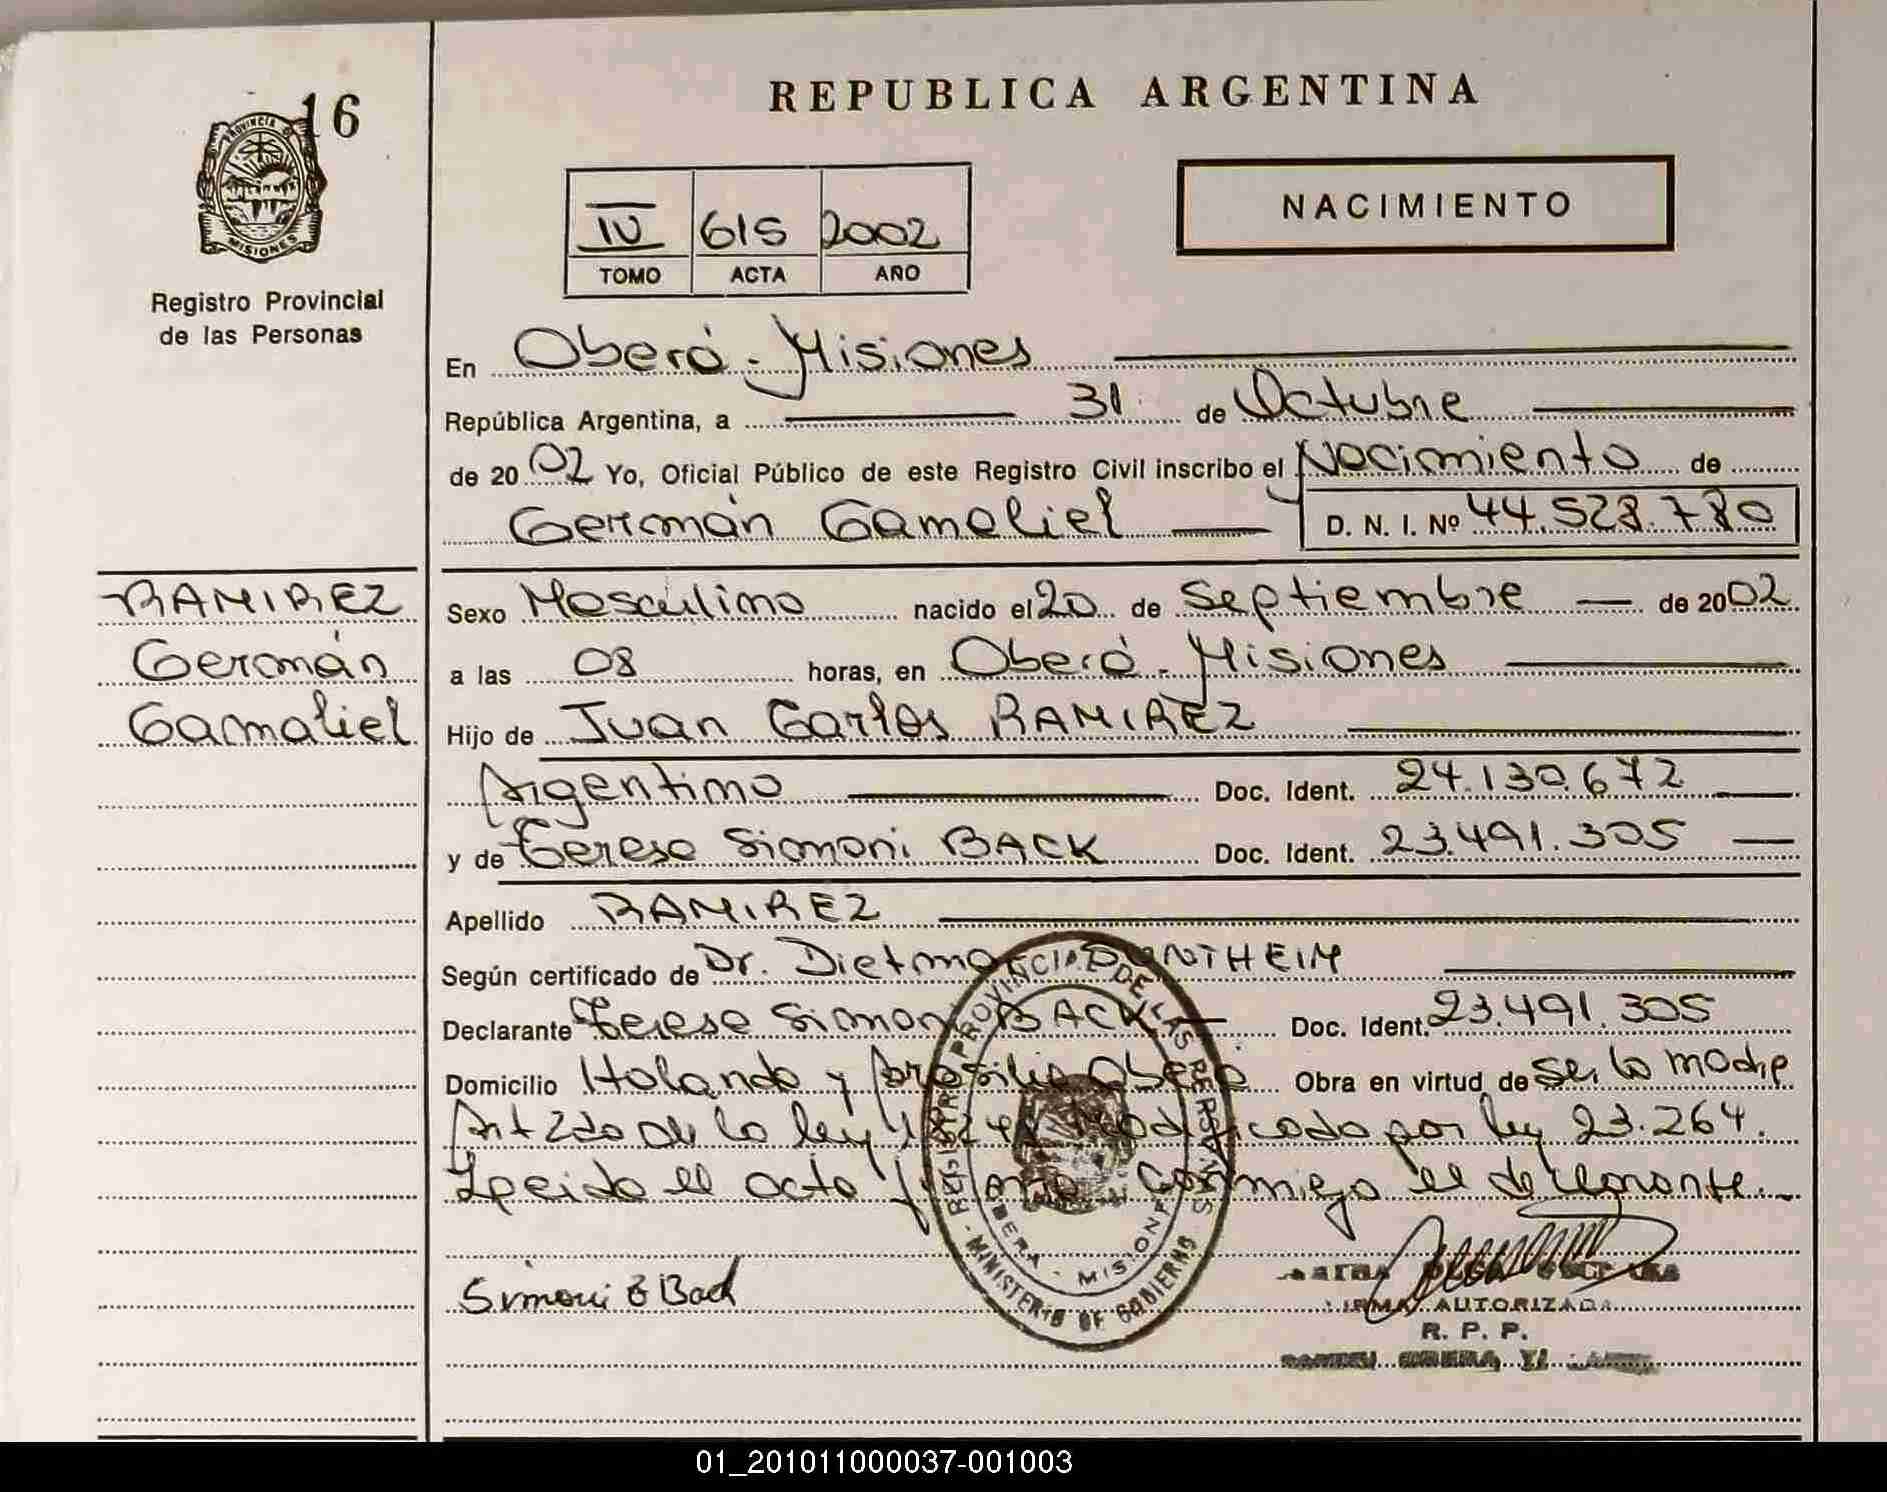 16
PROVINCIA DE
MISIONES
Registro Provincial
de las Personas
REPUBLICA ARGENTINA
IV 615 2002
TOMO ACTA AÑO
NACIMIENTO
En Oberá - Misiones
República Argentina, a 31 de Octubre
de 2002 Yo, Oficial Público de este Registro Civil inscribo el Nacimiento de
Germán Gamaliel D. N. I. Nº 44.528.780
RAMIREZ
Germán
Gamaliel
Sexo Masculino nacido el 20 de Septiembre de 2002
a las 08 horas, en Oberá - Misiones
Hijo de Juan Carlos RAMIREZ
Argentino Doc. Ident. 24.130.672
y de Teresa Simoni BACK Doc. Ident. 23.491.305
Apellido RAMIREZ
Según certificado de Dr. Dietmar
Declarante Teresa Simoni BACK Doc. Ident. 23.491.305
Domicilio Holanda y Brasilia Oberá Obra en virtud de ser la madre
Art 2do de la ley modificado por ley 23.264.
Leida el acta firma conmigo el declarante.
REGISTRO PROVINCIAL DE LAS PERSONAS
OBERA - MISIONES
MINISTERIO DE GOBIERNO
Simoni B Back
FIRMA AUTORIZADA
R. P. P.
01_201011000037-001003